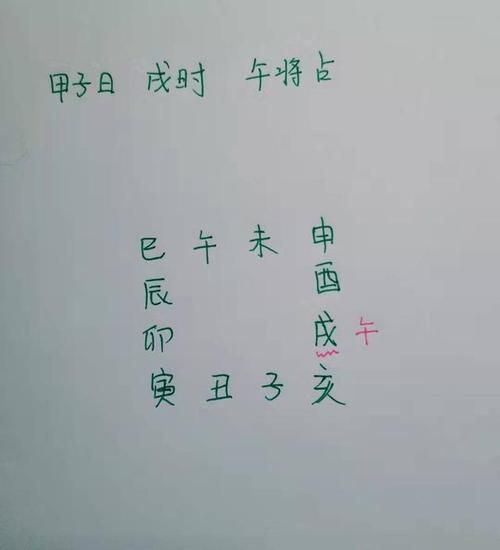 甲子日 戌时 午将占
巳 午 未 申
辰 酉
卯 戌 午
寅 丑 子 亥